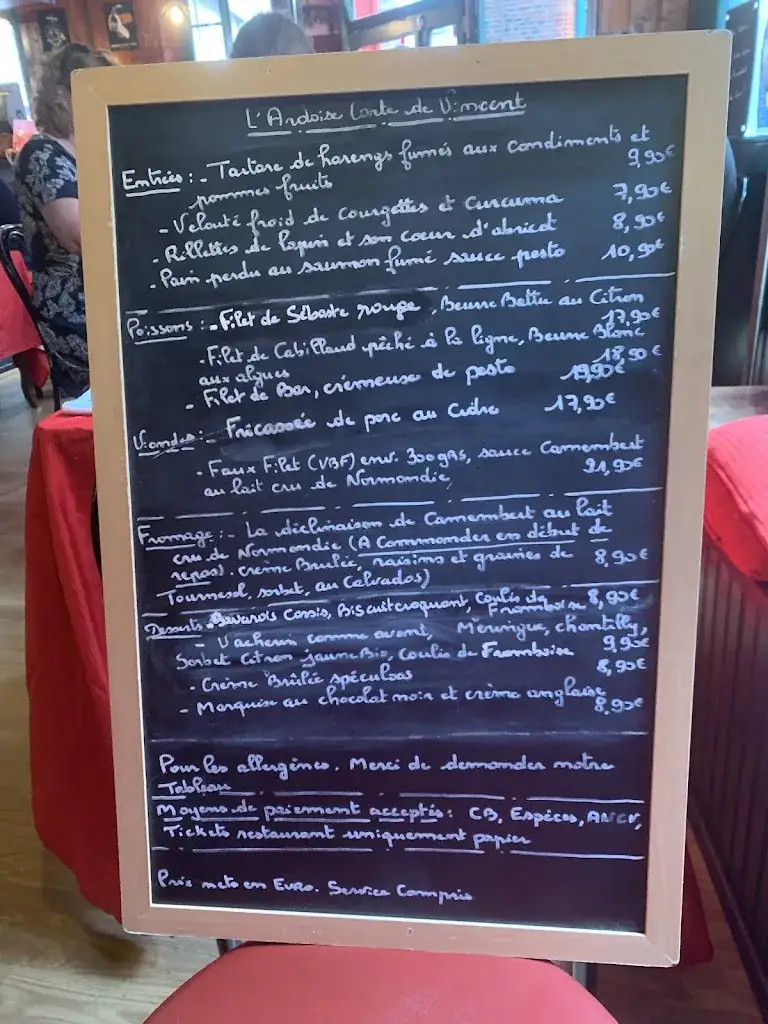 L'Ardoise Carte de Vincent
Entrées : - Tartare de harengs fumés aux condiments et
pommes fruits 9,90€
- Velouté froid de courgettes et curcuma 7,90€
- Rillettes de lapin et son coeur d'abricot 8,90€
- Pain perdu au saumon fumé sauce pesto 10,90€
Poissons : - Filet de Sébaste rouge, Beurre Battu au Citron
17,90€
- Filet de Cabillaud pêché à la ligne, Beurre Blanc
aux algues 18,90€
- Filet de Bar, crémeuse de pesto 19,90€
Viandes : - Fricassée de porc au Cidre 17,90€
- Faux Filet (VBF) env. 300grs, sauce Camembert
au lait cru de Normandie, 21,90€
Fromage : - La déclinaison de Camembert au lait
cru de Normandie (A Commander en début de
repas). crème Brulée, raisins et graines de 8,90€
Tournesol, sorbet, au Calvados)
Desserts - Bavarois Cassis, Biscuit croquant, Coulis de
Framboise 8,90€
- Vacherin comme avant, Meringue, chantilly,
Sorbet Citron jaune Bio, Coulis de Framboise 9,90€
- Crème Brûlée spéculoos 8,90€
- Marquise au chocolat noir et crème anglaise
8,90€
Pour les allergènes. Merci de demander notre
Tableau
Moyens de paiement acceptés : CB, Espèces, ANCV,
Tickets restaurant uniquement papier
Prix nets en Euro. Service Compris